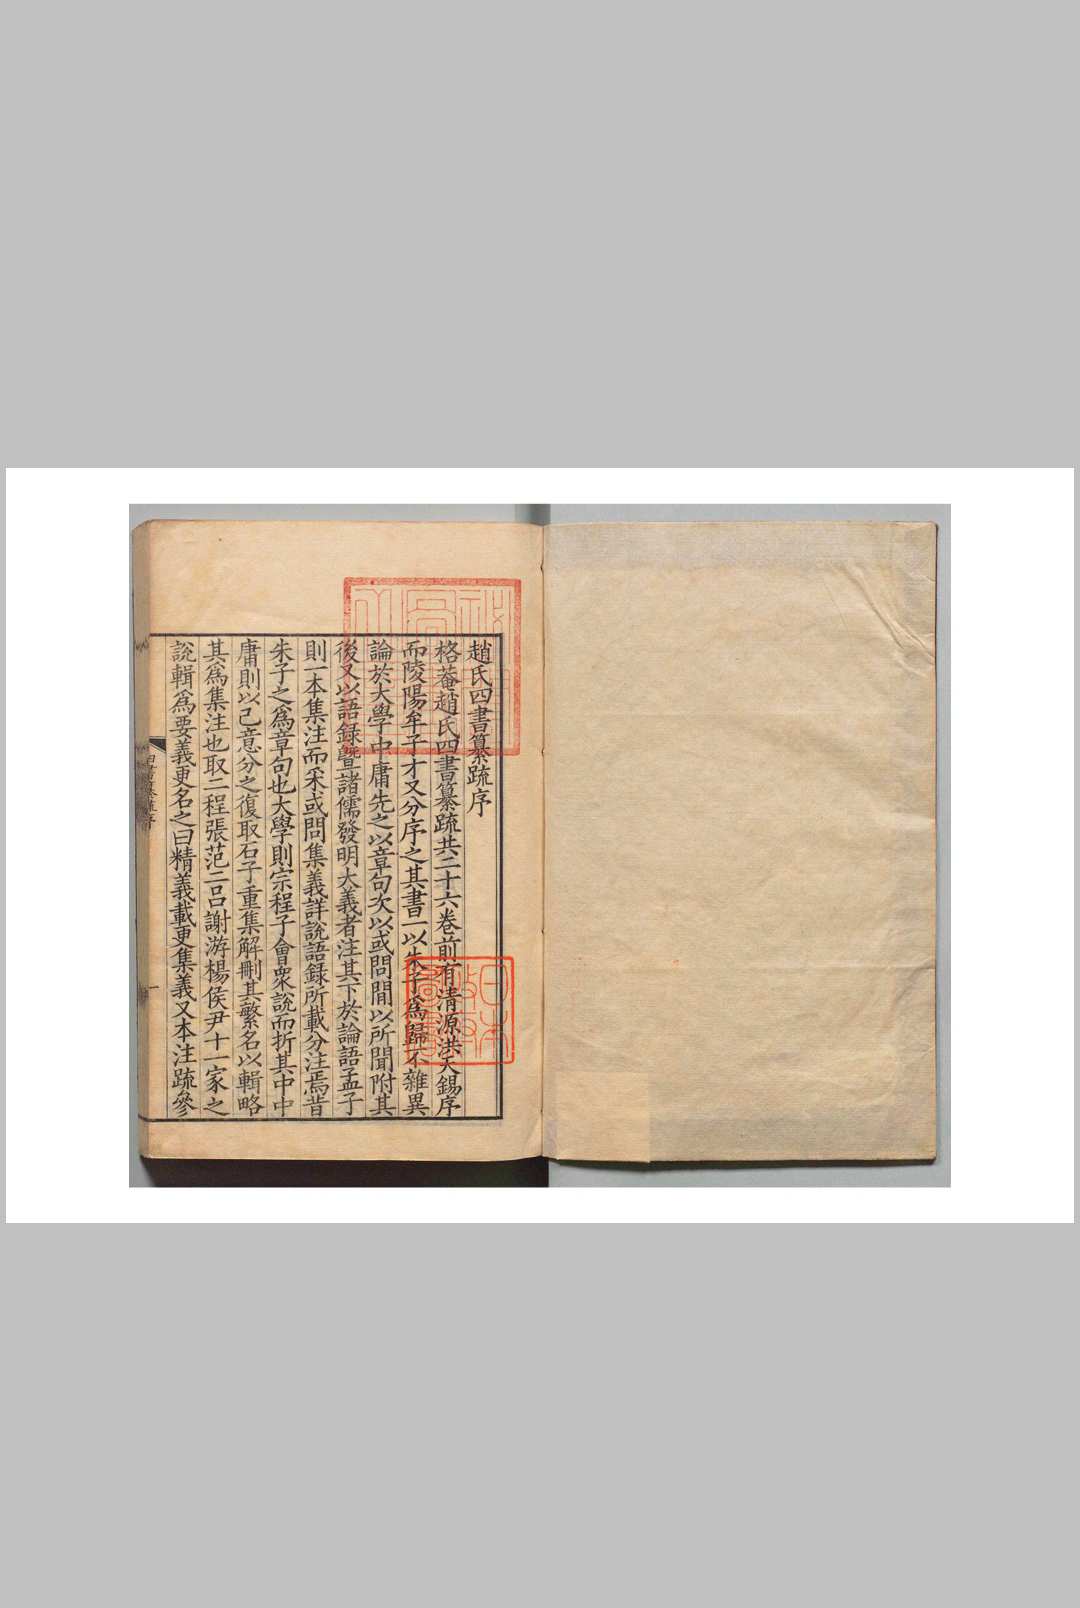 趙氏四書纂疏序
格菴趙氏四書纂疏共二十六卷前有清源洪天錫序
而陵陽牟子才又分序之其書一以朱子爲歸不雜異
論於大學中庸先之以章句次以或問間以所聞附其
後又以語録暨諸儒發明大義者注其下於論語孟子
則一本集注而采或問集義詳說語録所載分注焉昔
朱子之爲章句也大學則宗程子會衆說而折其中中
庸則以己意分之復取石子重集解刪其繁名以輯略
其爲集注也取二程張范二呂謝游楊侯尹十一家之
說輯爲要義更名之曰精義載更集義又本注疏參
四書纂疏序
一
日本
政府
圖書